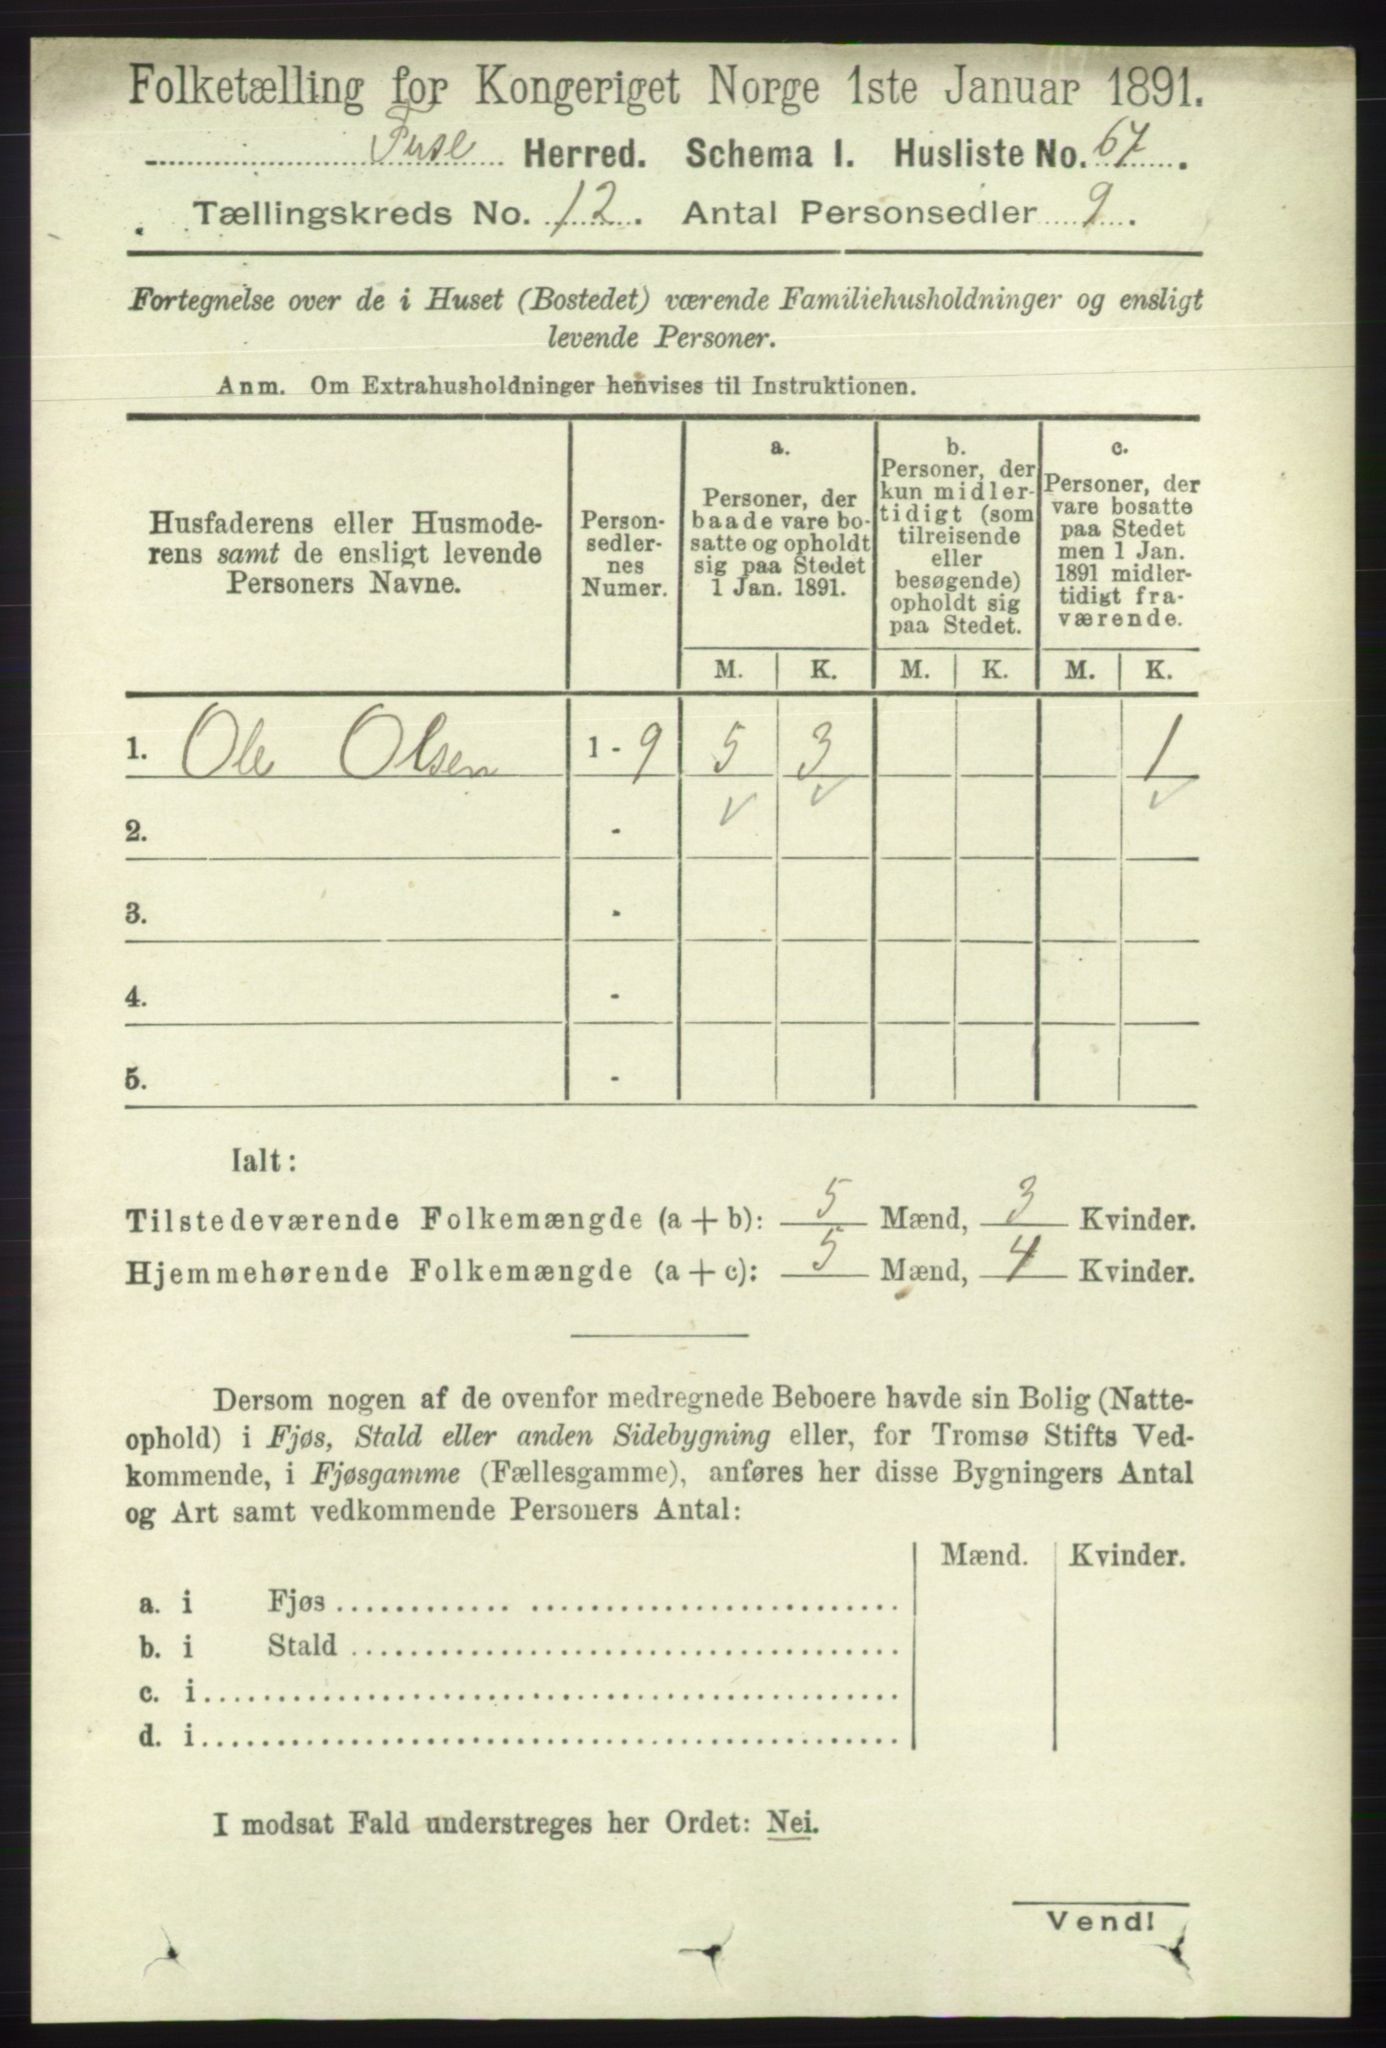 Folketælling for Kongeriget Norge 1ste Januar 1891.
Fuse Herred. Schema I. Husliste No. 67.
Tællingskreds No. 12. Antal Personsedler 9.
Fortegnelse over de i Huset (Bostedet) værende Familiehusholdninger og ensligt
levende Personer.
Anm. Om Extrahusholdninger henvises til Instruktionen.
Husfaderens eller Husmode-
rens samt de ensligt levende
Personers Navne.
Person-
sedler-
nes
Numer.
a.
Personer, der
baade vare bo-
satte og opholdt
sig paa Stedet
1 Jan. 1891.
b.
Personer, der
kun midler-
tidigt (som
tilreisende
eller
besøgende)
opholdt sig
paa Stedet.
c.
Personer, der
vare bosatte
paa Stedet
men 1 Jan.
1891 midler-
tidigt fra-
værende.
M. K. M. K. M. K.
1. Ole Olsen 1 - 9 5 3 1
2. -
3. -
4. -
5. -
Ialt:
Tilstedeværende Folkemængde (a + b): 5 Mænd, 3 Kvinder.
Hjemmehørende Folkemængde (a + c): 5 Mænd, 4 Kvinder.
Dersom nogen af de ovenfor medregnede Beboere havde sin Bolig (Natte-
ophold) i Fjøs, Stald eller anden Sidebygning eller, for Tromsø Stifts Ved-
kommende, i Fjøsgamme (Fællesgamme), anføres her disse Bygningers Antal
og Art samt vedkommende Personers Antal:
Mænd. Kvinder.
a. i Fjøs
b. i Stald
c. i
d. i
I modsat Fald understreges her Ordet: Nei.
Vend!